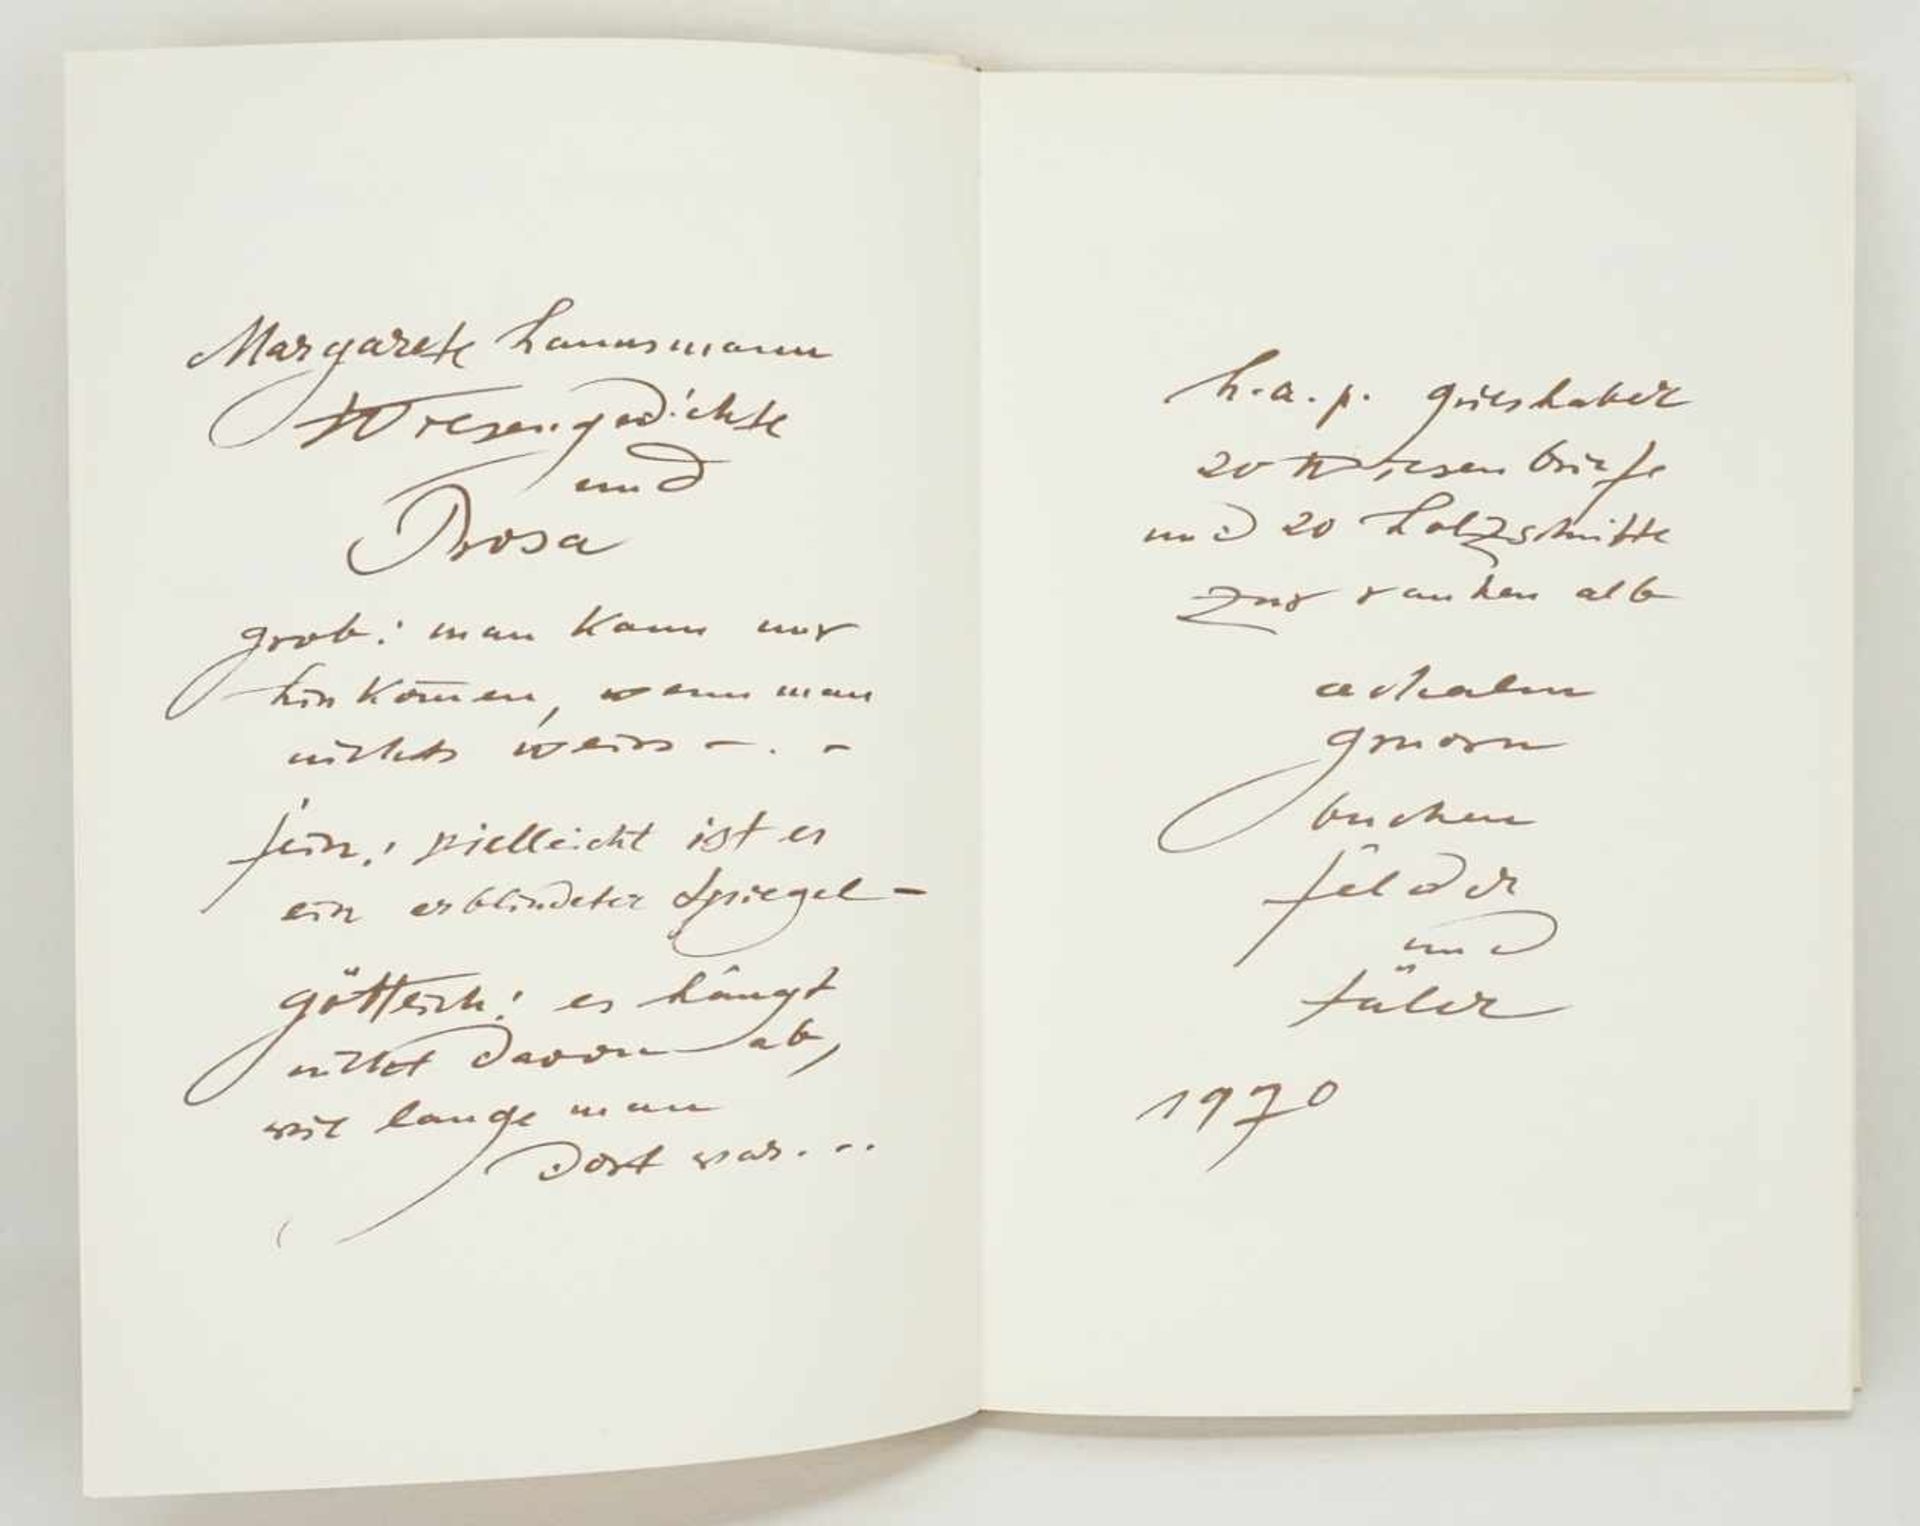 Margarete hannsmann
Wiesengedichte
und
Prosa
grob: man kann nur
hinkom̅en, wenn man
nichts weiss – . –
fein: vielleicht ist es
ein erblindeter Spiegel –
göttlich: es hängt
nicht davon ab,
wie lange man
dort war...
h.a.p. grieshaber
20 Wiesenbriefe
und 20 holzschnitte
zur rauhen alb
achalm
gruorn
buchen
felder
und
täler
1970